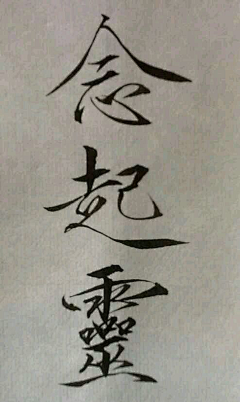 念起靈